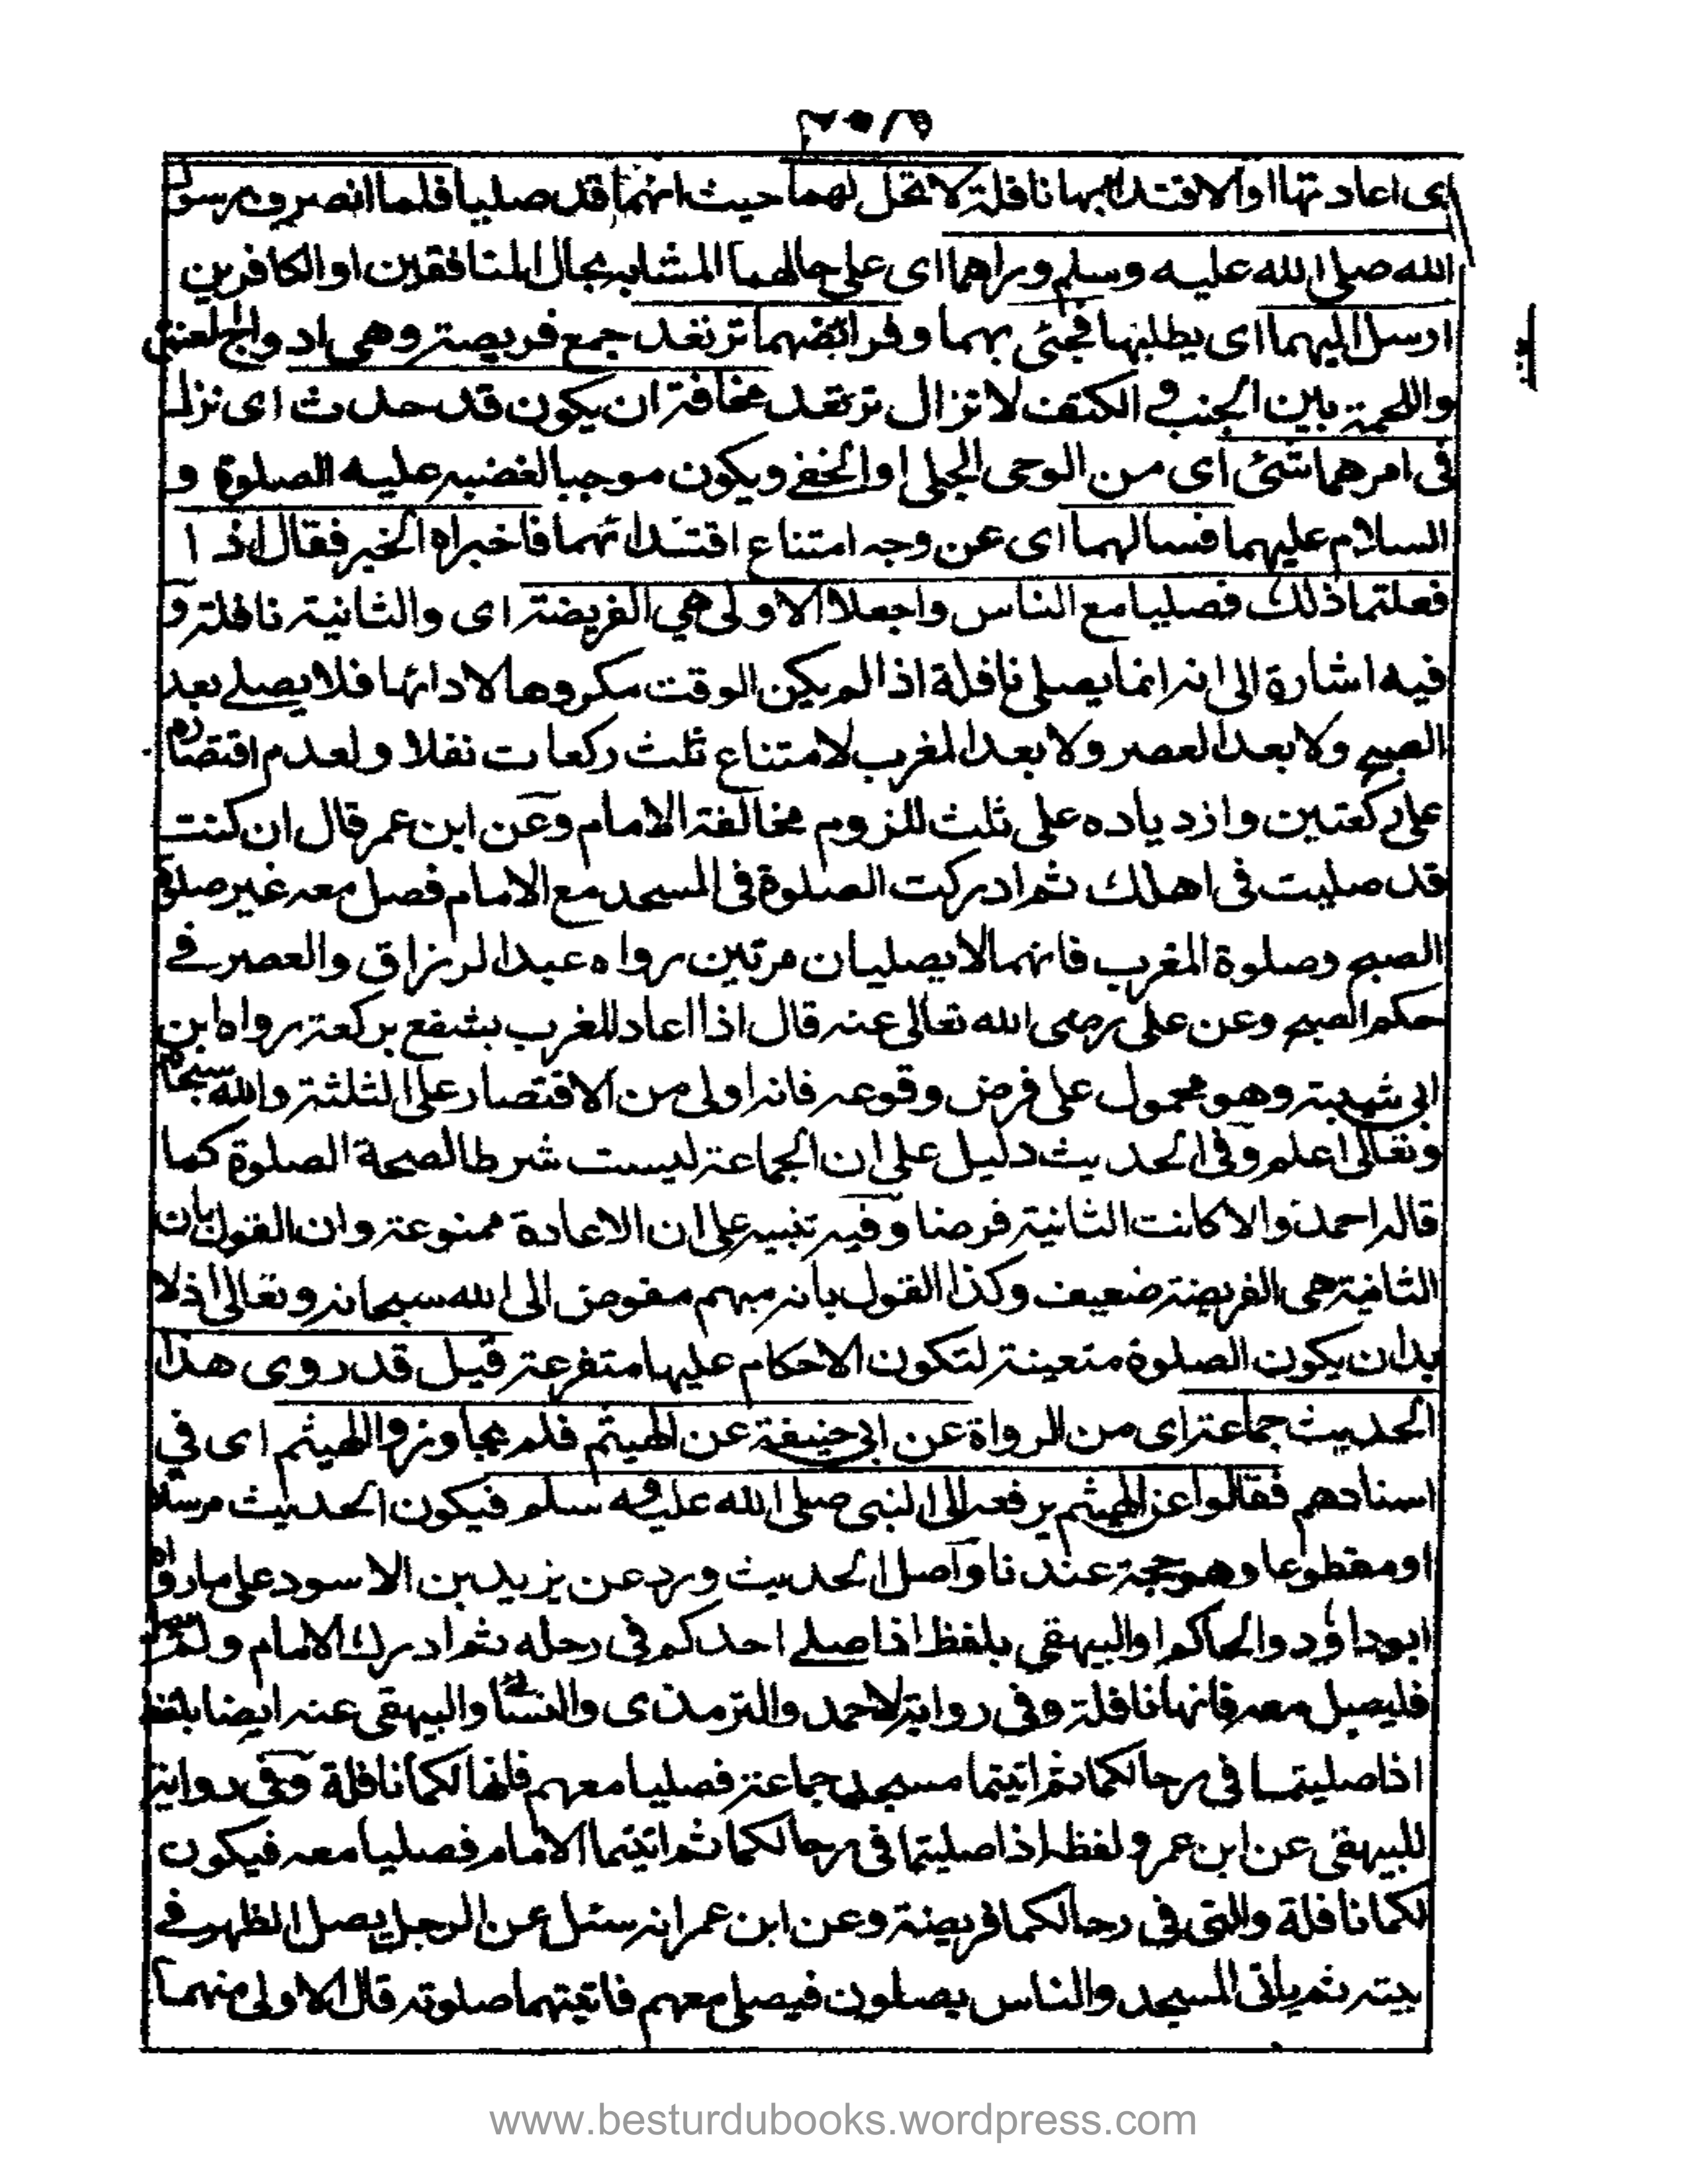 اى اعادتها او الاقتداء بها نافلة لا تحل لهما حيث انهما قد صليا فلما انصرف رسول
الله صلى الله عليه وسلم وراهما اى على حالهما المشابه بحال المنافقين او الكافرين
ارسل اليهما اى يطلبهما فجئى بهما وفرائضهما ترتعد جمع فريصة وهى اوداج العنق
واللحمة بين الجنب والكتف لا تزال ترتعد مخافة ان يكون قد حدث اى نزل
فى امرهما شئى اى من الوحى الجلى او الخفى ويكون موجبا لغضبه عليه الصلوة و
السلام عليهما فسالهما اى عن وجه امتناع اقتدائهما فاخبراه الخبر فقال اذا
فعلتما ذلك فصليا مع الناس واجعلا الاولى هى الفريضة اى والثانية نافلة و
فيه اشارة الى انه انما يصلى نافلة اذا لم يكن الوقت مكروها لادائها فلا يصلى بعد
الصبح ولا بعد العصر ولا بعد المغرب لامتناع ثلث ركعات نفلا ولعدم اقتصاره
على ركعتين وازدياده على ثلث للزوم مخالفة الامام وعن ابن عمر قال ان كنت
قد صليت فى اهلك ثم ادركت الصلوة فى المسجد مع الامام فصل معه غير صلوة
الصبح وصلوة المغرب فانهما لا يصليان مرتين رواه عبد الرزاق والعصر فى
حكم الصبح وعن على رضى الله تعالى عنه قال اذا اعاد المغرب يشفع بركعة رواه ابن
ابى شيبة وهو محمول على فرض وقوعه فانه اولى من الاقتصار على الثلثة والله سبحانه
وتعالى اعلم وفى الحديث دليل على ان الجماعة ليست شرطا لصحة الصلوة كما
قاله احمد والا كانت الثانية فرضا وفيه تنبيه على ان الاعادة ممنوعة وان القول بان
الثانية هى الفريضة ضعيف وكذا القول بانه مبهم مفوض الى الله سبحانه وتعالى اذ لا
بد ان يكون الصلوة متعينة لتكون الاحكام عليها متفرعة قيل قد روى هذا
الحديث جماعة اى من الرواة عن ابى حنيفة عن الهيثم فلم يجاوزوا الهيثم اى فى
اسنادهم فقالوا عن الهيثم يرفعه الى النبى صلى الله عليه وسلم فيكون الحديث مرسلا
او مقطوعا وهو حجة عندنا واصل الحديث ورد عن يزيد بن الاسود على ما رواه
ابو داؤد والحاكم والبيهقى بلفظ اذا صلى احدكم فى رحله ثم ادرك الامام ولم يصل
فليصل معه فانها نافلة وفى رواية لاحمد والترمذى والنسائى والبيهقى عنه ايضا بلفظ
اذا صليتما فى رحالكما ثم اتيتما مسجد جماعة فصليا معهم فانها لكما نافلة وفى رواية
للبيهقى عن ابن عمرو لفظه اذا صليتما فى رحالكما ثم اتيتما الامام فصليا معه فيكون
لكما نافلة والتى فى رحالكما فريضة وعن ابن عمر انه سئل عن الرجل يصلى الظهر فى
بيته ثم ياتى المسجد والناس يصلون فيصلى معهم فايتهما صلوته قال الاولى منهما
www.besturdubooks.wordpress.com